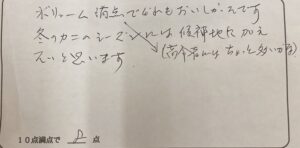 ボリューム満点でどれもおいしかったです
冬のカニのシーズンには候補地に加え
たいと思います
(高令者にはちょっと多いかな)
10点満点で 8 点